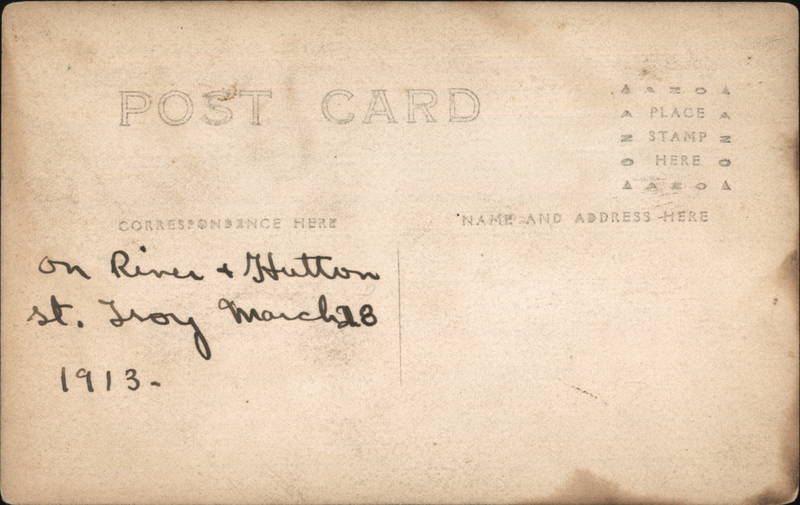 POST CARD
AZO
PLACE
STAMP
HERE
AZO
CORRESPONDENCE HERE
NAME AND ADDRESS HERE
on River + Hutton
st. Troy March 28
1913.